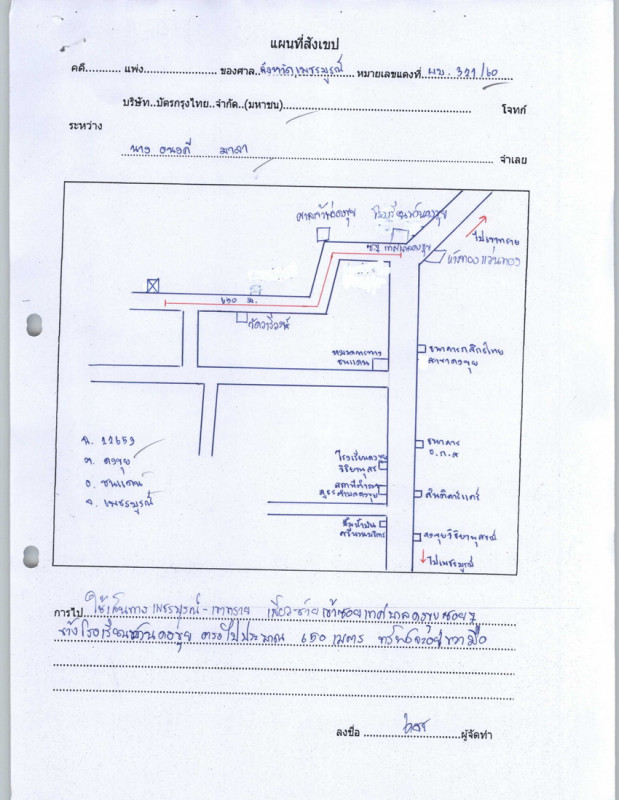 แผนที่สังเขป
คดี............ แพ่ง........................ ของศาล..จังหวัดเพชรบูรณ์.. หมายเลขแดงที่..ผบ. 321/60
บริษัท..บัตรกรุงไทย..จำกัด..(มหาชน) โจทก์
ระหว่าง
นาง มาลา จำเลย
ไปเขาทราย
650 ม.
วัดวารีวงษ์
หมวดการทาง
ชนแดน
ธนาคารกสิกรไทย
สาขาดงขุย
ฉ. 11653
ต. ดงขุย
อ. ชนแดน
จ. เพชรบูรณ์
ธนาคาร
ธ.ก.ส
โรงเรียนดงขุย
วิทยาคม
สถานีตำรวจ
ภูธรตำบลดงขุย
ปั๊มน้ำมัน
ไปเพชรบูรณ์
การไป ใช้เส้นทาง เพชรบูรณ์ - เขาทราย เลี้ยวซ้ายเข้าซอยเทศบาลดงขุยซอย 7
ข้างโรงเรียนบ้านดงขุย ตรงไปประมาณ 650 เมตร ทรัพย์จะอยู่ขวามือ
ลงชื่อ ............................ผู้จัดทำ